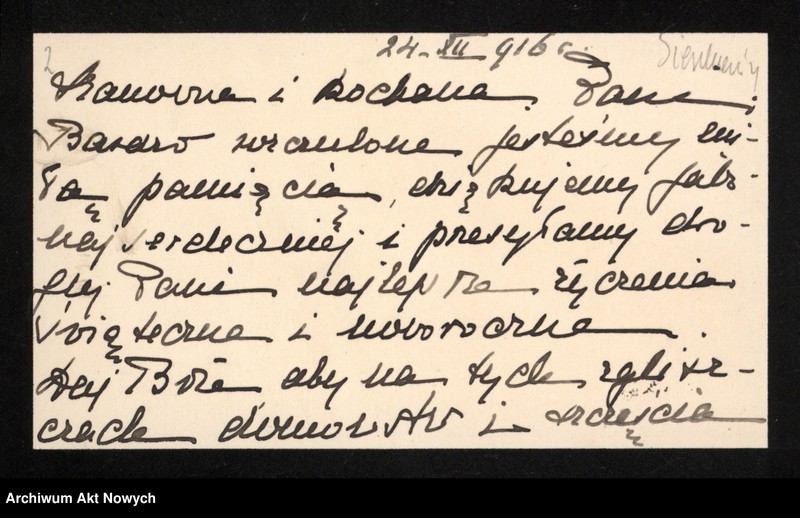 2
24. XII 916 r.
Sienkiewicz
Szanowna i kochana Pani
Bardzo wzruszone jesteśmy mi-
łą pamięcią, dziękujemy jak-
najserdeczniej i przesyłamy dro-
giej Pani najlepsze życzenia
świąteczne i noworoczne.
Daj Boże aby na tych zglisz-
czach domostw i szczęścia
Archiwum Akt Nowych